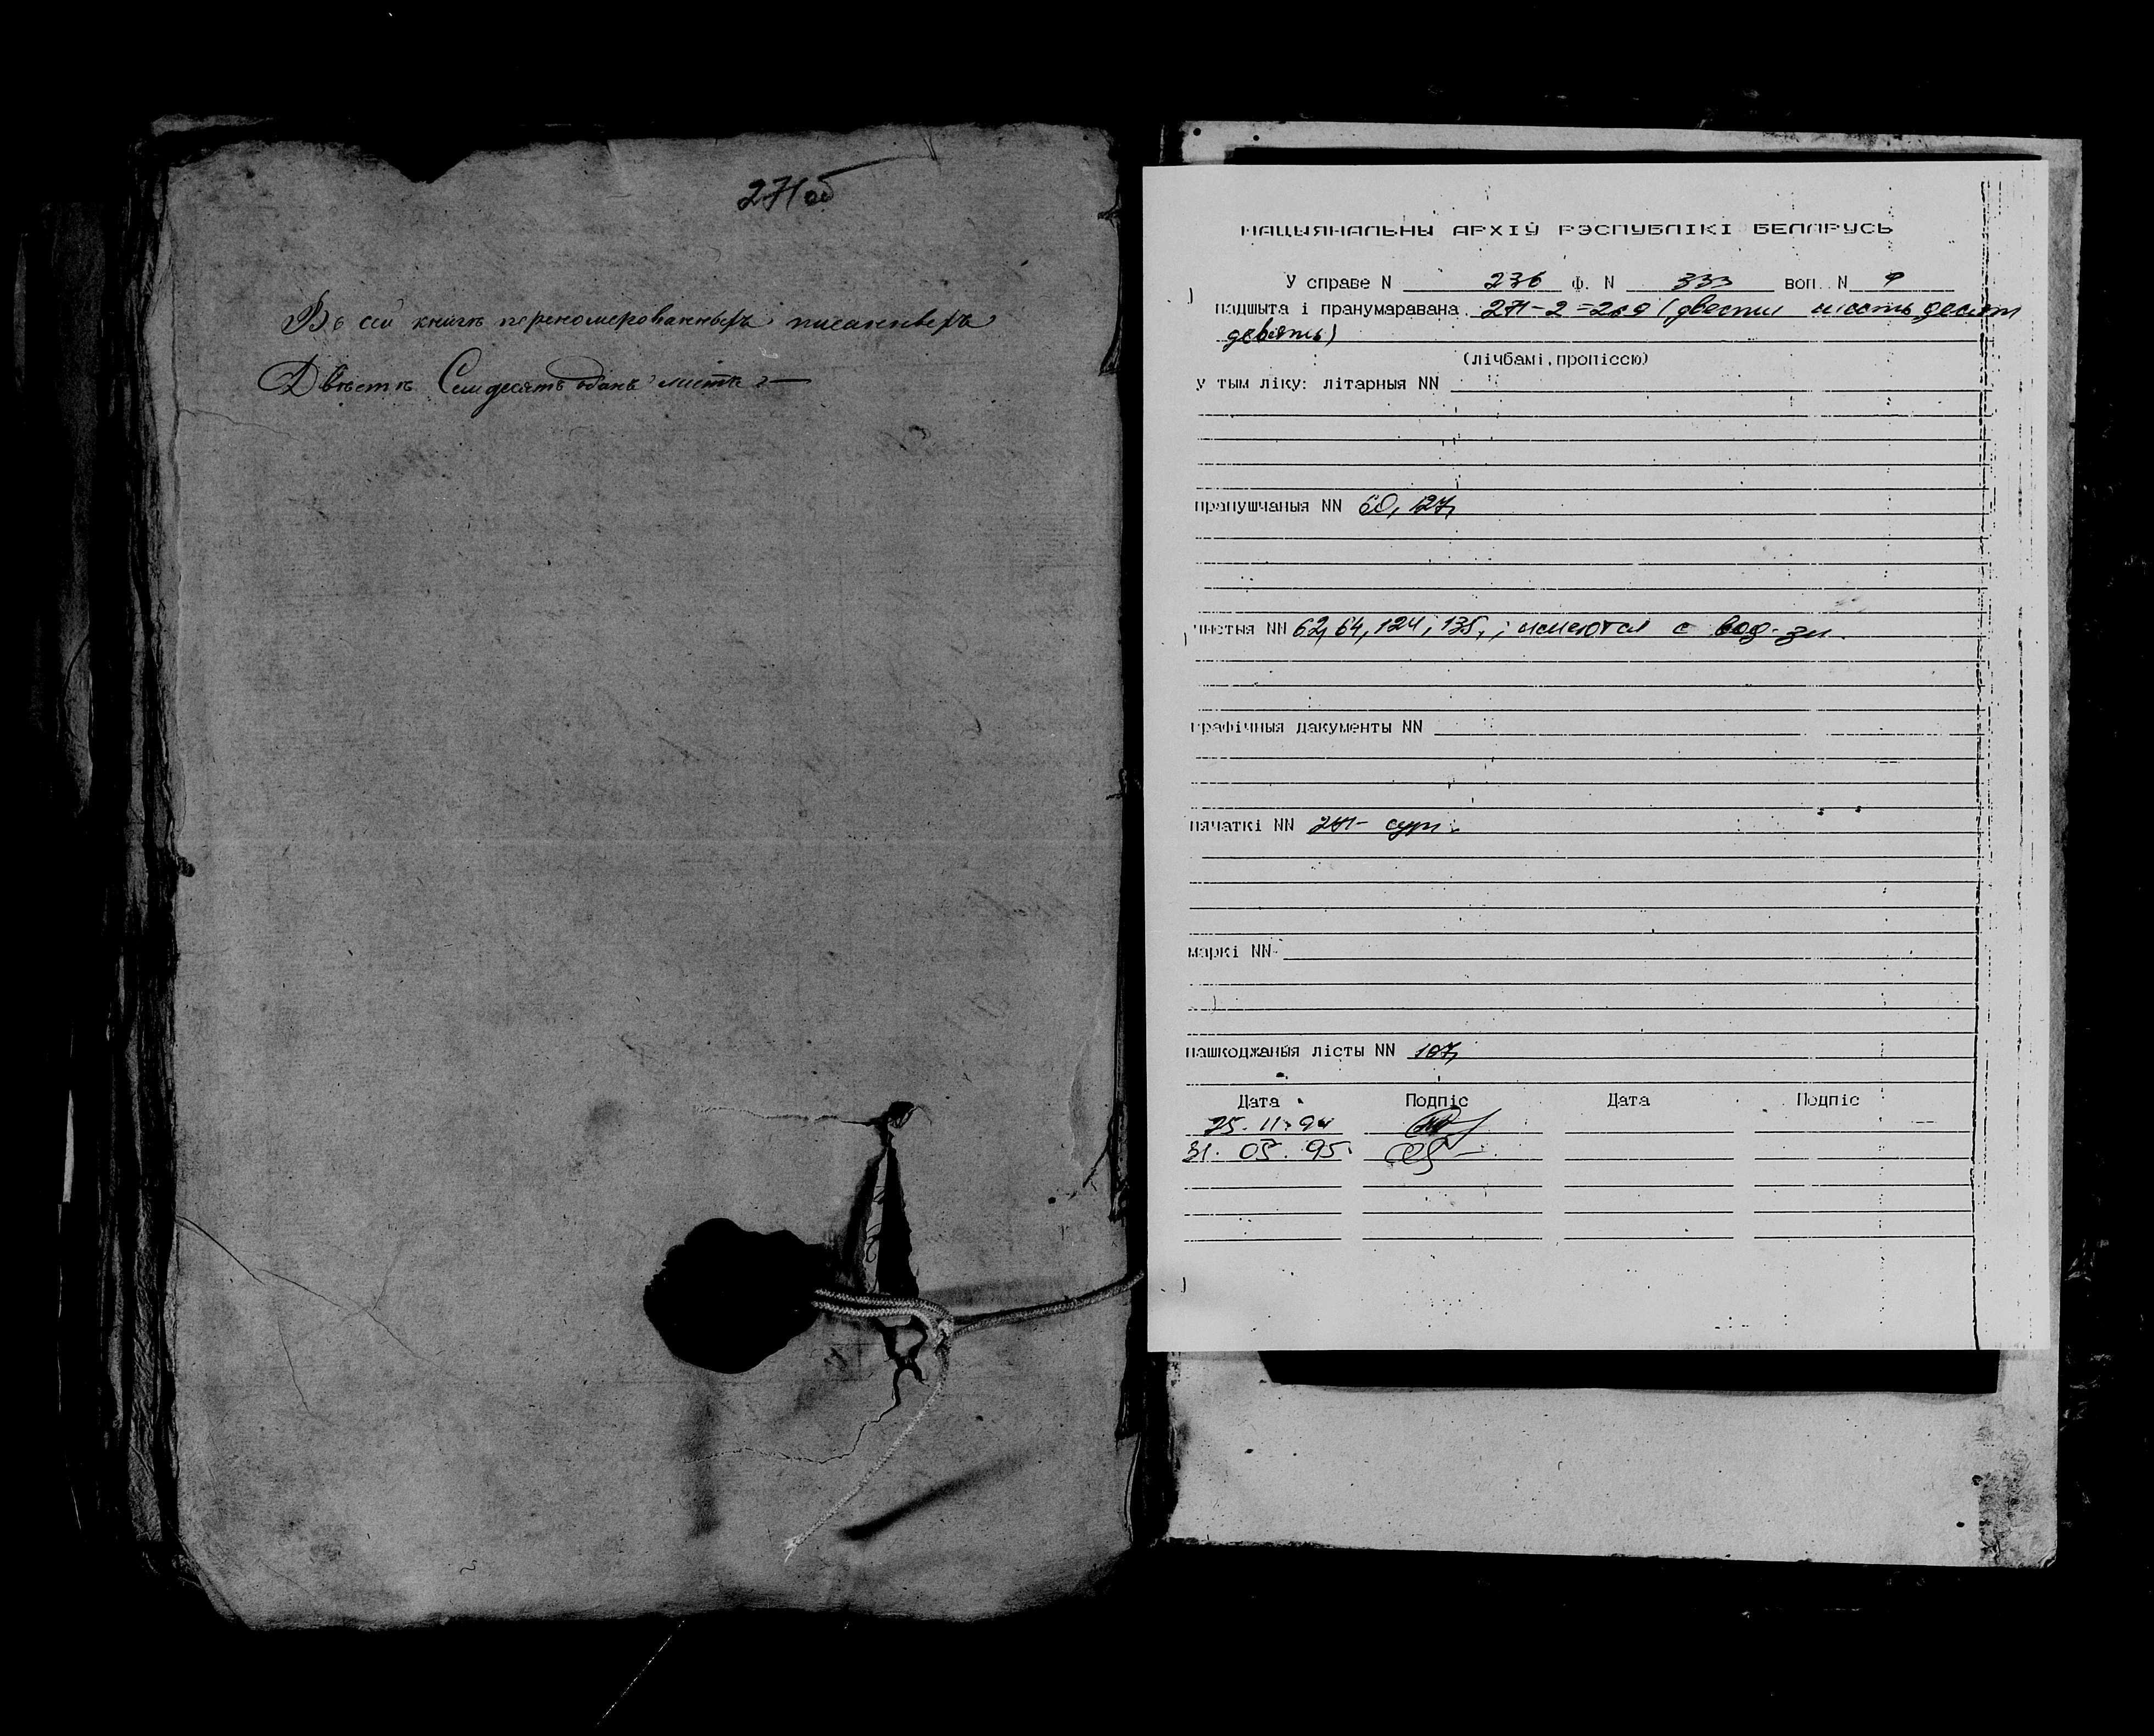 271об
Въ сей книге переномерованныхъ писанныхъ
Двѣсти Семдесятъ одинъ листъ
НАЦЫЯНАЛЬНЫ АРХІЎ РЭСПУБЛІКІ БЕЛАРУСЬ
У справе N 236 ф. N 333 воп. N 9
падшыта і пранумаравана 271-2=269 (двести шестьдесят
девять)
(лічбамі, пропіссю)
у тым ліку: літарныя NN
прапушчаныя NN 60, 127,
чистыя NN 62, 64, 124, 135, ; имеются с вод. зн.
графічныя дакументы NN
пячаткі NN 271- сург.
маркі NN
пашкоджаныя лісты NN 107,
Дата Подпіс Дата Подпіс
25.11.94
31.03.95.